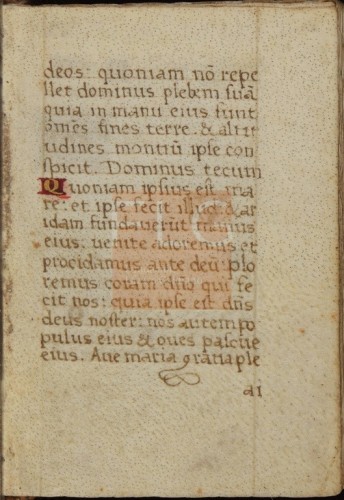 deos: quoniam nõ repe
llet dominus plebem suã
quia in manu eius sunt
omẽs fines terre. & altit
udines montiũ ipse con
spicit. Dominus tecum
Quoniam ipsius est ma
re: et ipse fecit illud: & ar
idam fundaverũt manus
eius: venite adoremus et
procidamus ante deũ: plo
remus coram dño qui fe
cit nos: quia ipse est dñs
deus noster: nos autem po
pulus eius & oves pascue
eius. Ave maria gratia ple